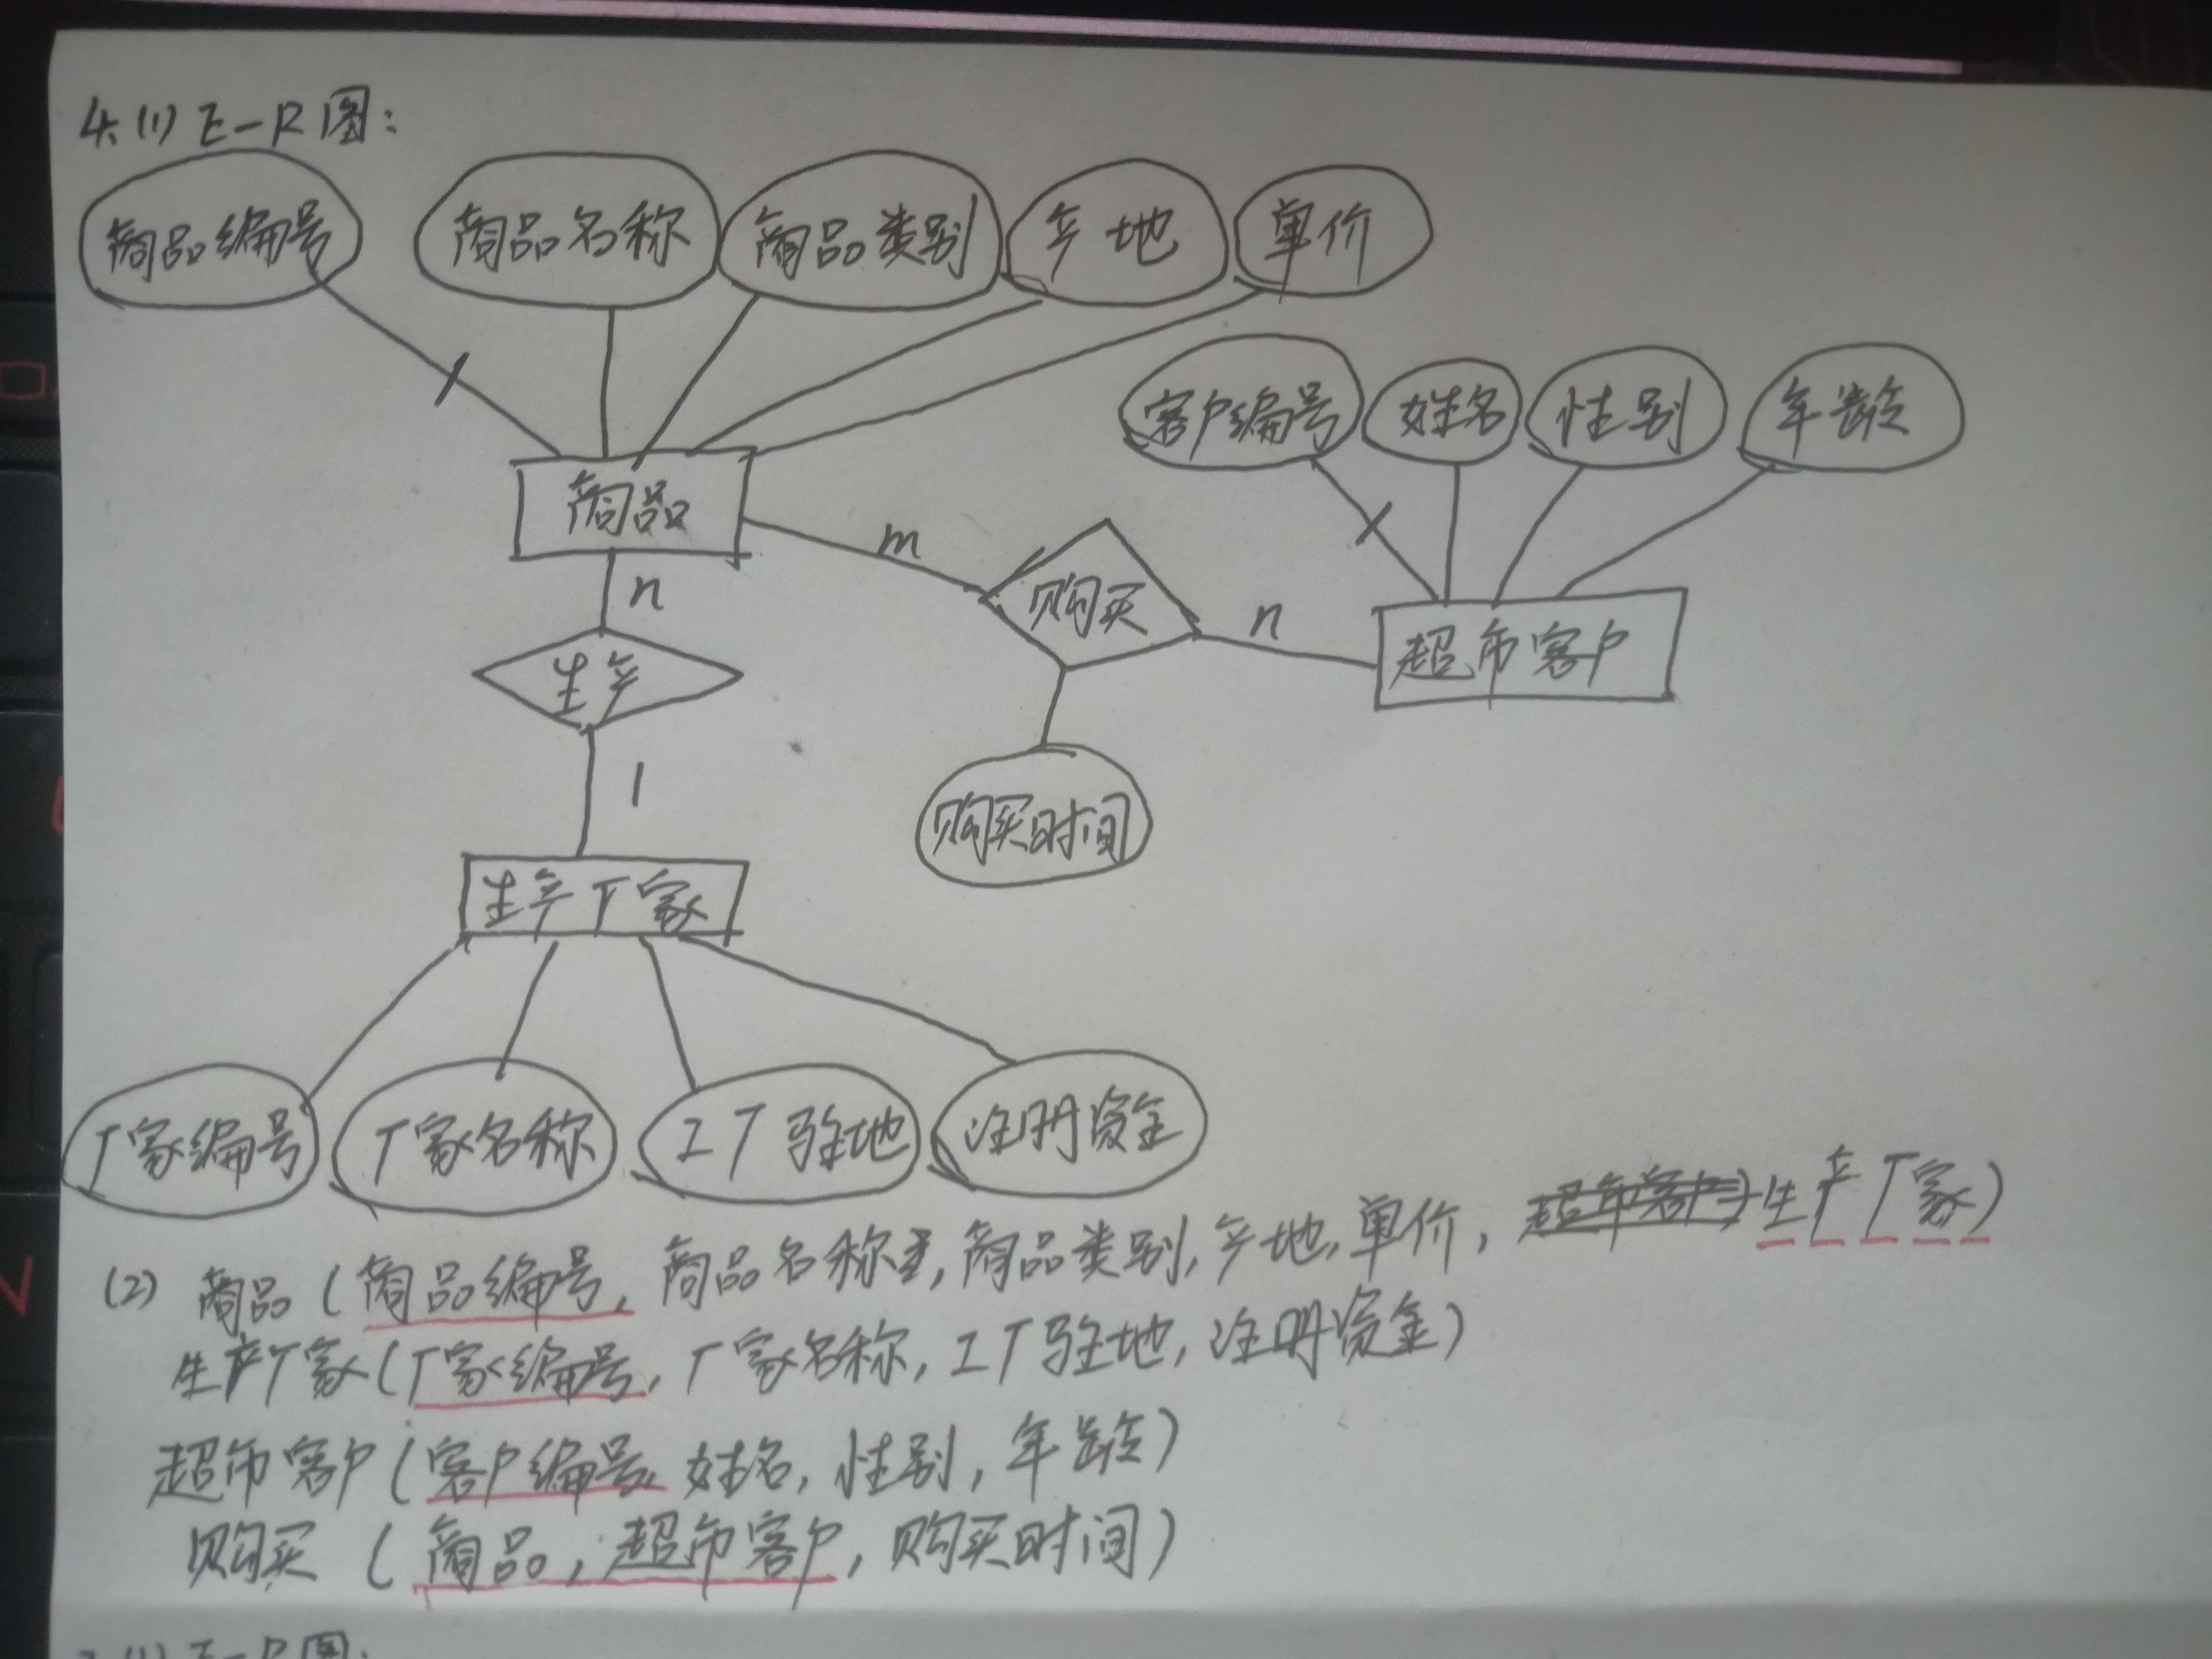 4.(1) E-R图:
商品编号 商品名称 商品类别 产地 单价
客户编号 姓名 性别 年龄
商品
m
购买
n
超市客户
n
生产
1
购买时间
生产厂家
厂家编号 厂家名称 工厂驻地 注册资金
(2) 商品(商品编号, 商品名称, 商品类别, 产地, 单价, 生产厂家)
生产厂家(厂家编号, 厂家名称, 工厂驻地, 注册资金)
超市客户(客户编号, 姓名, 性别, 年龄)
购买(商品, 超市客户, 购买时间)
(1) E-R图: